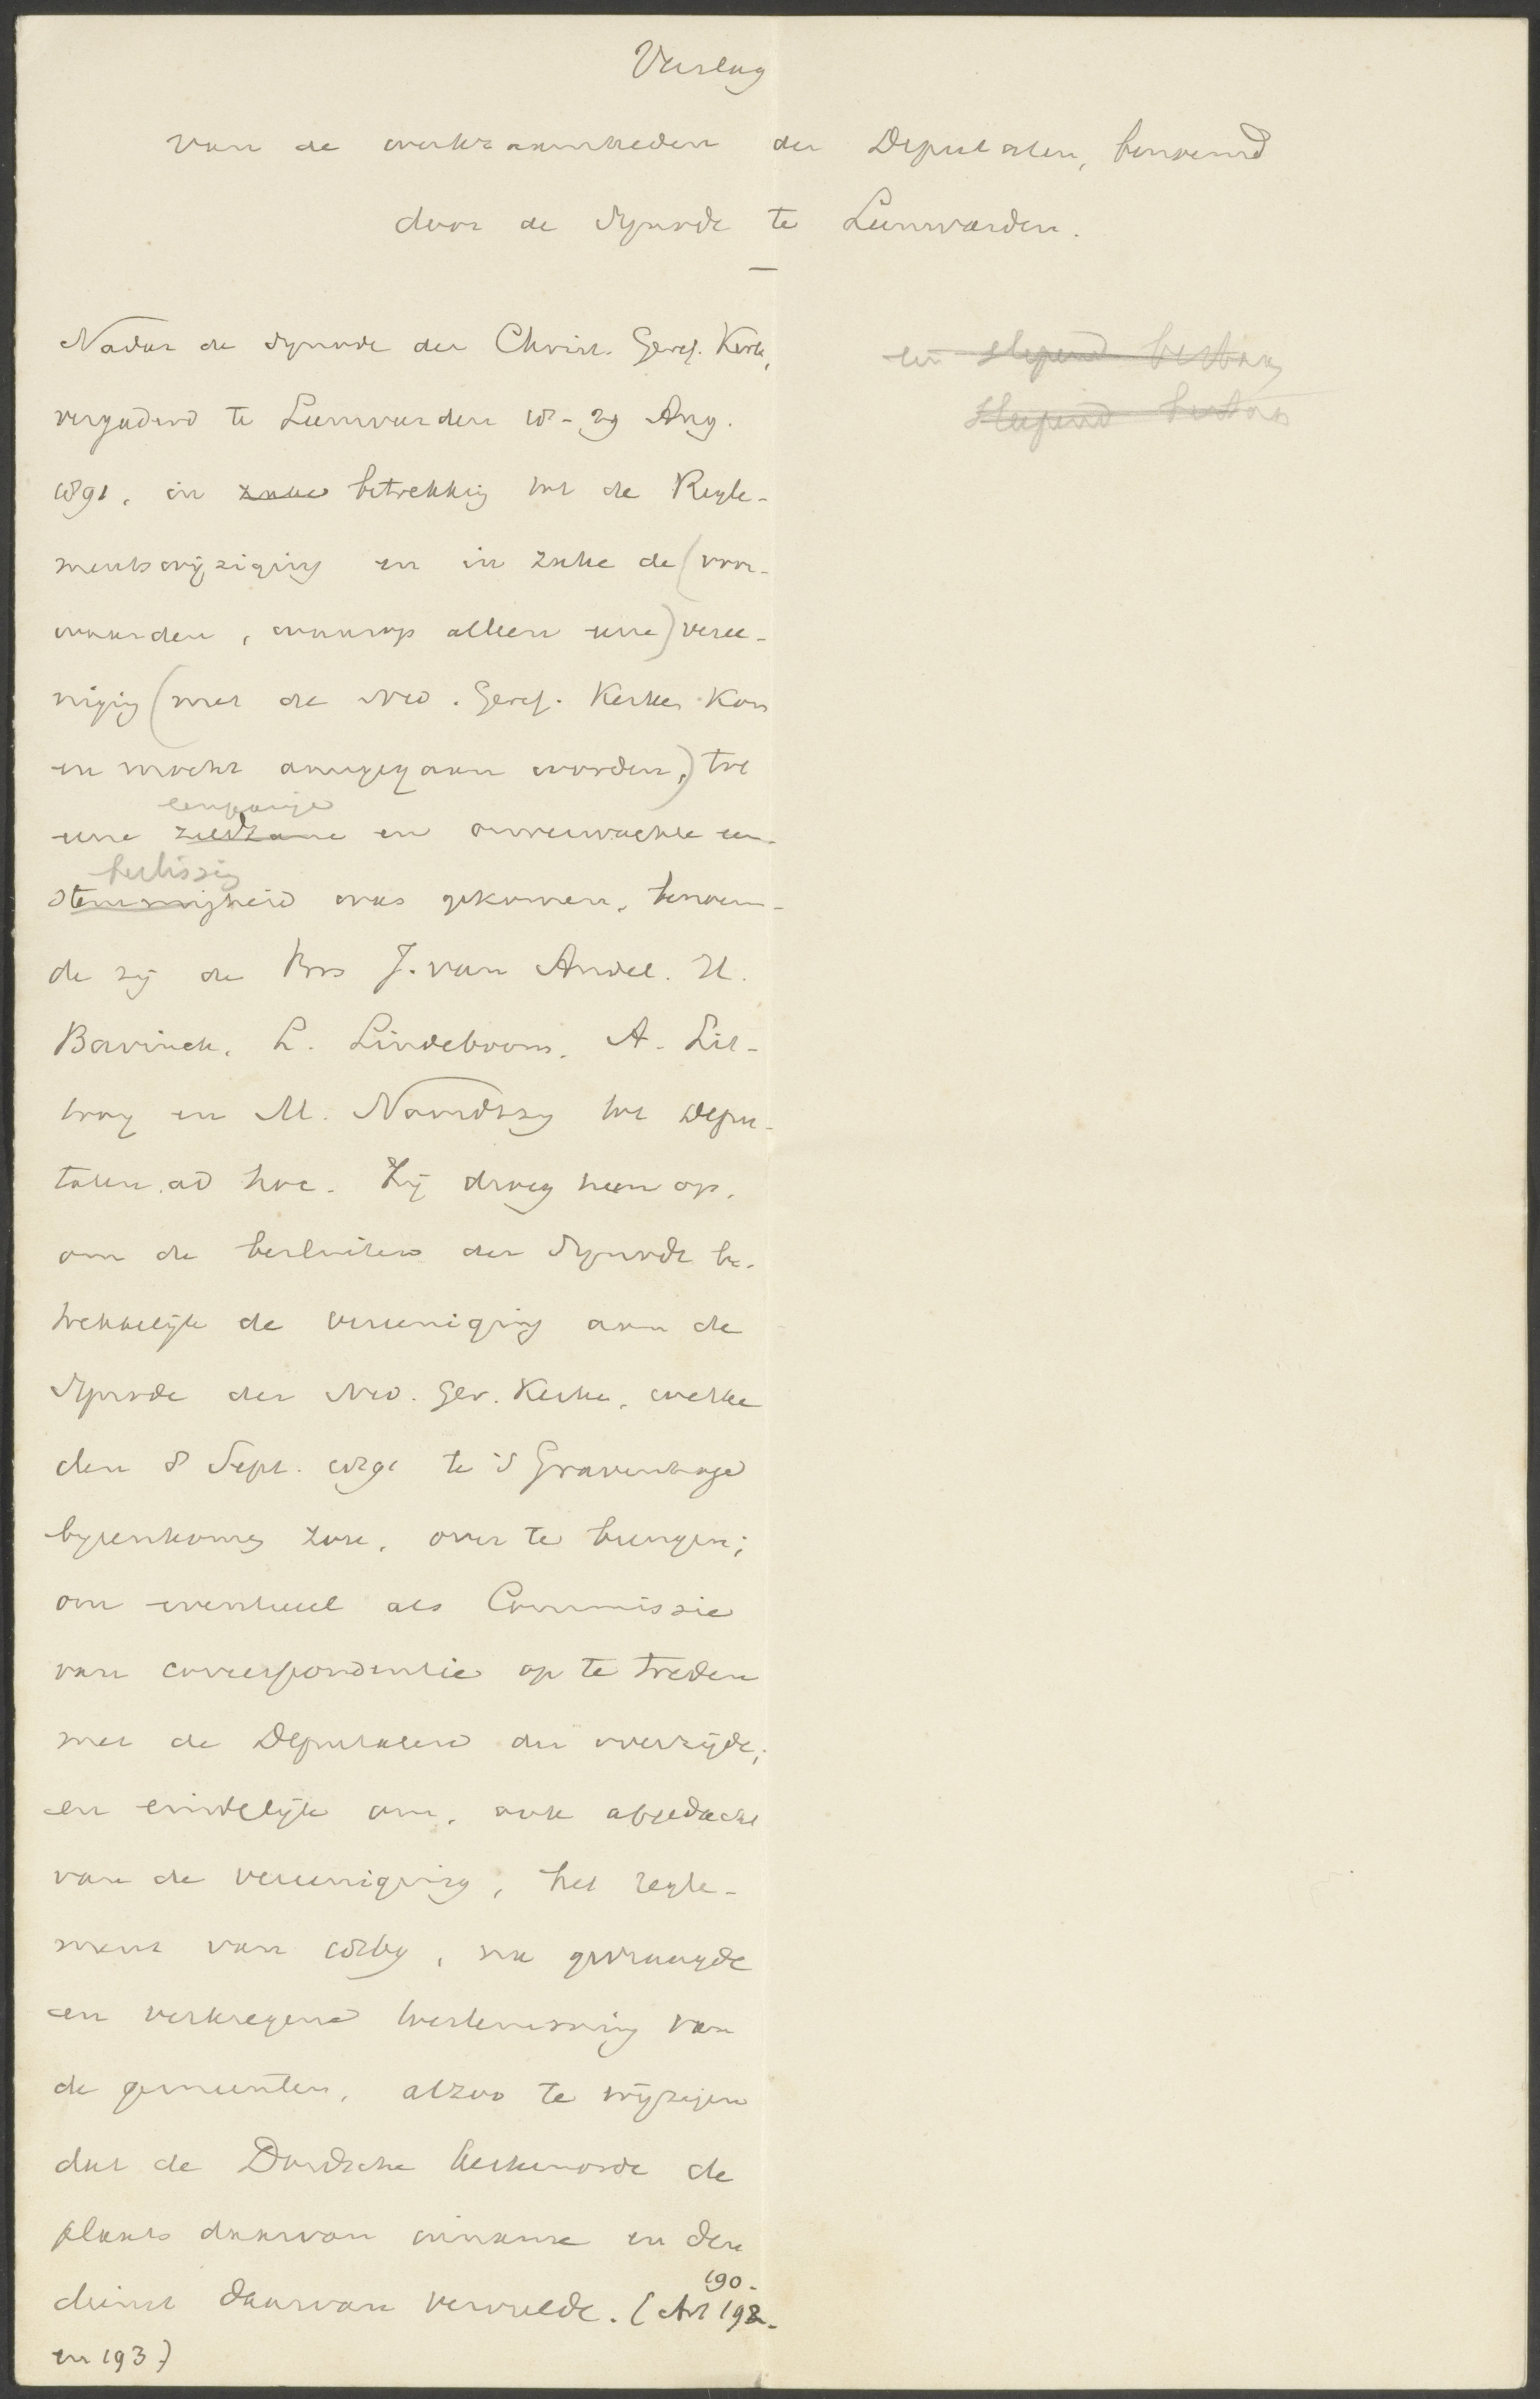 Verslag
van de werkzaamheden der Deputaten, benoemd
door de Synode te Leeuwarden.
Nadat de Synode der Christ. Geref. Kerk,
vergaderd te Leeuwarden 18-29 Aug.
1891, in zake betrekking tot de Regle-
mentswijziging en in zake de (voor-
waarden, waarop alleen eene) veree-
niging (met de Ned. Geref. Kerken kon
en mocht aangegaan worden,) tot
eene zeldzame en onverwachte een-
stemmigheid was gekomen, benoem-
de zij de Brs J. van Andel. H.
Bavinck. L. Lindeboom. A. Lit-
tooy en M. Noordtzij tot Depu-
taten ad hoc. Zij droeg hem op,
om de besluiten der Synode be-
trekkelijk de vereeniging aan de
Synode der Ned. Ger. Kerken, welke
den 8 Sept. 1891 te 's Gravenhage
bijeenkomen zou, over te brengen;
om eventueel als Commissie
van correspondentie op te treden
met de Deputaten der overzijde;
en eindelijk om, ook afgedacht
van de vereeniging, het regle-
ment van 1869, na gevraagde
en verkregene toestemming van
de gemeenten, alzoo te wijzigen
dat de Dordsche kerkenorde de
plaats daarvan inname en den
dienst daarvan vervulde. (Art 192-
190-
en 193.)
een slepend bestaan
slepend bestaan